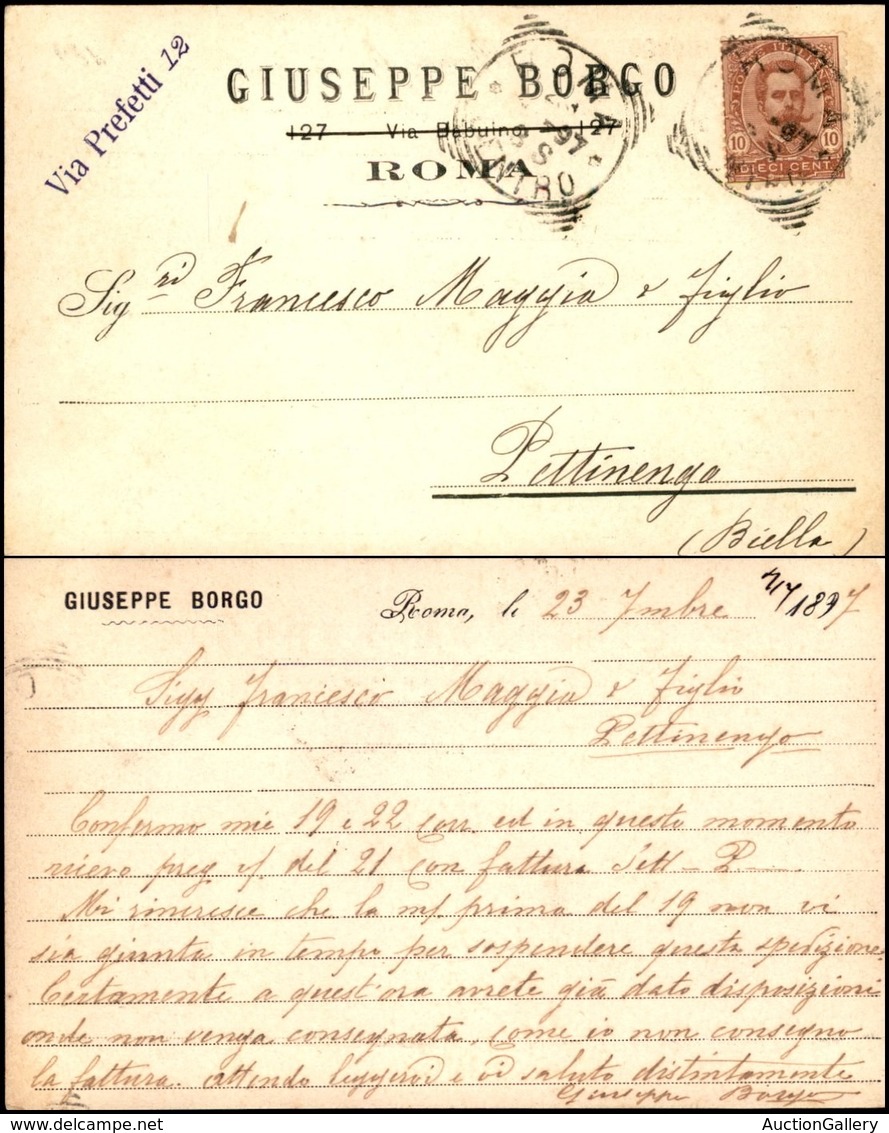 Via Prefetti 12
GIUSEPPE BORGO
127 Via Babuino 127
ROMA
ROMA
97
CENTRO
POSTE ITALIANE
10 10
DIECI CENT.
Sig.ri Francesco Maggia & figlio
Pettinengo
(Biella)
GIUSEPPE BORGO
Roma, li 23 7mbre 1897
Sigg Francesco Maggia & figlio
Pettinengo
Confermo mie 19 e 22 corr ed in questo momento
ricevo preg. v/. del 21 con fattura
Mi rincresce che la m/ prima del 19 non vi
sia giunta in tempo per sospendere questa spedizione.
Certamente a quest'ora avrete già dato disposizioni
onde non venga consegnata, come io non consegno
la fattura. Attendo leggervi e vi saluto distintamente
Giuseppe Borgo
AuctionGallery